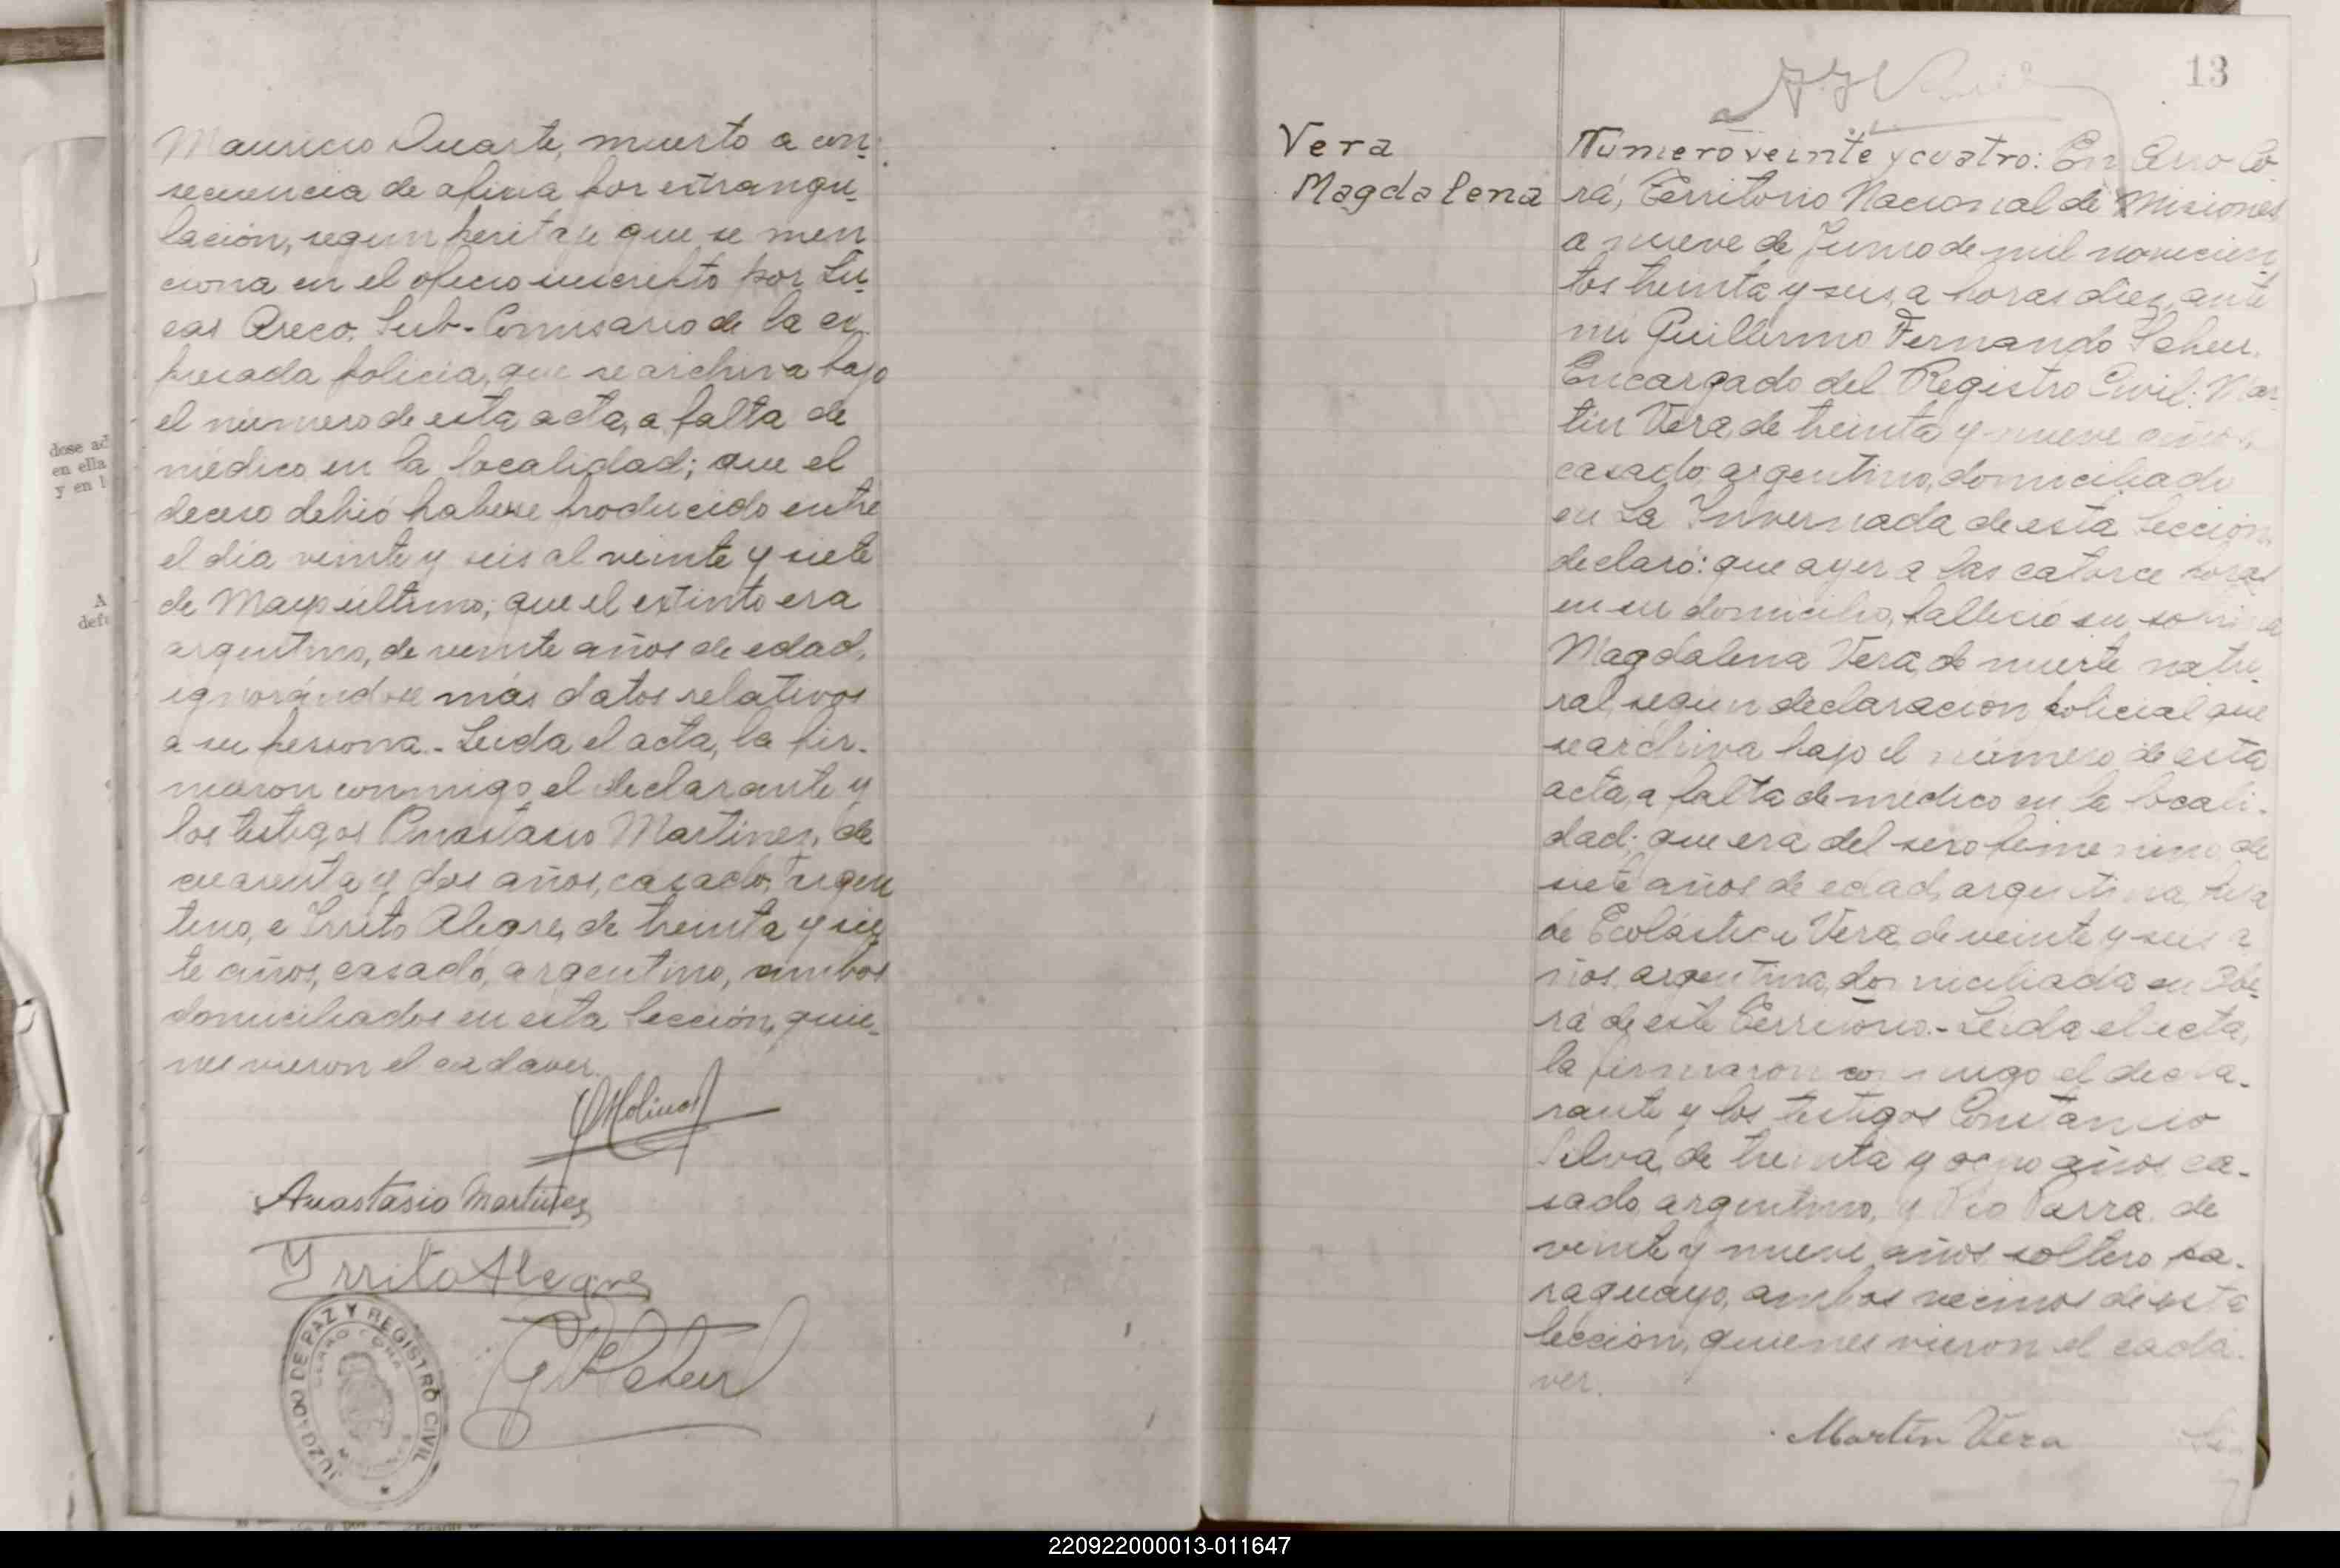 Mauricio Duarte, muerto a con-
secuencia de afixia por extrangu-
lación, segun peritaje que se men
ciona en el oficio suscripto por Lu-
cas Areco, Sub-Comisario de la ex-
presada policia, que se archiva bajo
el número de esta acta, a falta de
médico en la localidad; que el
deceso debió haberse producido entre
el dia veinte y seis al veinte y siete
de Mayo último; que el extinto era
argentino, de veinte años de edad,
ignorándose más datos relativos
a su persona.- Leida el acta, la fir-
maron conmigo el declarante y
los testigos Anastasio Martinez, de
cuarenta y dos años, casado, argen
tino, e Irrito Alegre, de treinta y sie
te años, casado, argentino, ambos
domiciliados en esta Sección, quie-
nes vieron el cadaver.
Molinos
Anastasio Martinez
Yrrito Alegre
JUZGADO DE PAZ Y REGISTRO CIVIL
CERRO CORÁ
G F Scheu
dose ad
en ella
y en l
A
defu
13
Vera
Magdalena
Número veinte y cuatro: En Cerro Co-
rá, Territorio Nacional de Misiones
a nueve de Junio de mil novecien-
tos treinta y seis, a horas diez, ante
mi Guillermo Fernando Scheu,
Encargado del Registro Civil: Mar-
tin Vera, de treinta y nueve años,
casado, argentino, domiciliado
en La Invernada de esta Sección,
declaró: que ayer a las catorce horas
en su domicilio, falleció su sobrina
Magdalena Vera, de muerte natu-
ral, segun declaracion policial que
se archiva bajo el número de esta
acta, a falta de médico en la locali-
dad; que era del sexo femenino, de
siete años de edad, argentina, hija
de Ecolástica Vera, de veinte y seis a
ños, argentina, domiciliada en Obe-
rá de este Territorio.- Leida el acta,
la firmaron conmigo el decla-
rante y los testigos Constancio
Silva, de treinta y ocho años, ca-
sado, argentino, y Pio Parra, de
veinte y nueve años, soltero, pa-
raguayo, ambos vecinos de esta
Sección, quienes vieron el cadá-
ver.
Martin Vera
220922000013-011647